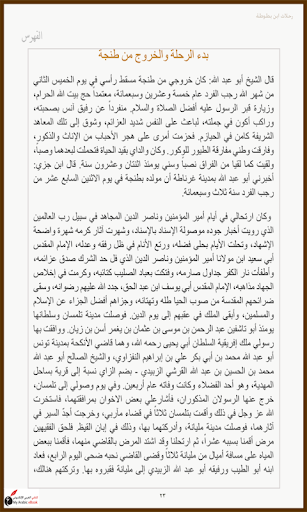 رحلات ابن بطوطة
الفهرس
بدء الرحلة والخروج من طنجة
قال الشيخ أبو عبد الله: كان خروجي من طنجة مسقط رأسي في يوم الخميس الثاني
من شهر الله رجب الفرد عام خمسة وعشرين وسبعمائة، معتمدا حج بيت الله الحرام،
وزيارة قبر الرسول عليه أفضل الصلاة والسلام. منفرداً عن رفيق آنس بصحبته،
وراكب أكون في جملته، لباعث على النفس شديد العزائم، وشوق إلى تلك المعاهد
الشريفة كامن في الحيازم. فجزمت أمري على هجر الأحباب من الإناث والذكور،
وفارقت وطني مفارقة الطيور للوكور. وكان والداي بقيد الحياة فتحملت لبعدهما وصباً،
ولقيت كما لقيا من الفراق نصباً وسني يومئذ اثنتان وعشرون سنة. قال ابن جزي:
أخبرني أبو عبد الله بمدينة غرناطة أن مولده بطنجة في يوم الاثنين السابع عشر من
رجب الفرد سنة ثلاث وسبعمائة.
وكان ارتحالي في أيام أمير المؤمنين وناصر الدين المجاهد في سبيل رب العالمين
الذي رويت أخبار جوده موصولة الإسناد بالإسناد، وشهرت آثار كرمه شهرة واضحة
الإشهاد، وتحلت الأيام بحلى فضله، ورتع الأنام في ظل رفقه وعدله، الإمام المقدس
أبي سعيد ابن مولانا أمير المؤمنين وناصر الدين الذي فل حد الشرك صدق عزائمه،
وأطفأت نار الكفر جداول صارمه، وفتكت بعباد الصليب كتائبه، وكرمت في إخلاص
الجهاد مذاهبه، الإمام المقدس أبي يوسف ابن عبد الحق، جدد الله عليهم رضوانه، وسقى
ضرائحهم المقدسة من صوب الحيا طله وتهتانه، وجزاهم أفضل الجزاء عن الإسلام
والمسلمين، وأبقى الملك في عقبهم إلى يوم الدين. فوصلت مدينة تلمسان وسلطانها
يومئذ أبو تاشفين عبد الرحمن بن موسى بن عثمان بن يغمر أسن بن زيان. ووافقت بها
رسولي ملك إفريقية السلطان أبي يحيى رحمه الله، وهما قاضي الأنكحة بمدينة تونس
أبو عبد الله محمد بن أبي بكر علي بن إبراهيم النفزاوي، والشيخ الصالح أبو عبد الله
محمد بن الحسين بن عبد الله القرشي الزبيدي - بضم الزاي نسبة إلى قرية بساحل
المهدية، وهو أحد الفضلاء وكانت وفاته عام أربعين. وفي يوم وصولي إلى تلمسان،
خرج عنها الرسولان المذكوران، فأشار علي بعض الاخوان بمرافقتهما، فاستخرت
الله عز وجل في ذلك وأقمت بتلمسان ثلاثاً في قضاء مآربي، وخرجت أجدّ السير في
آثارهما، فوصلت مدينة مليانة، وأدركتهما بها، وذلك في إبان القيظ. فلحق الفقيهين
مرض أقمنا بسببه عشراً، ثم ارتحلنا وقد اشتد المرض بالقاضي منهما، فأقمنا ببعض
المياه على مسافة أميال من مليانة ثلاثاً وقضى القاضي نحبه ضحى اليوم الرابع، فعاد
ابنه أبو الطيب ورفيقه أبو عبد الله الزبيدي إلى مليانة فقبروه بها. وتركتهم هنالك،
٢٣
My Arabic eBook